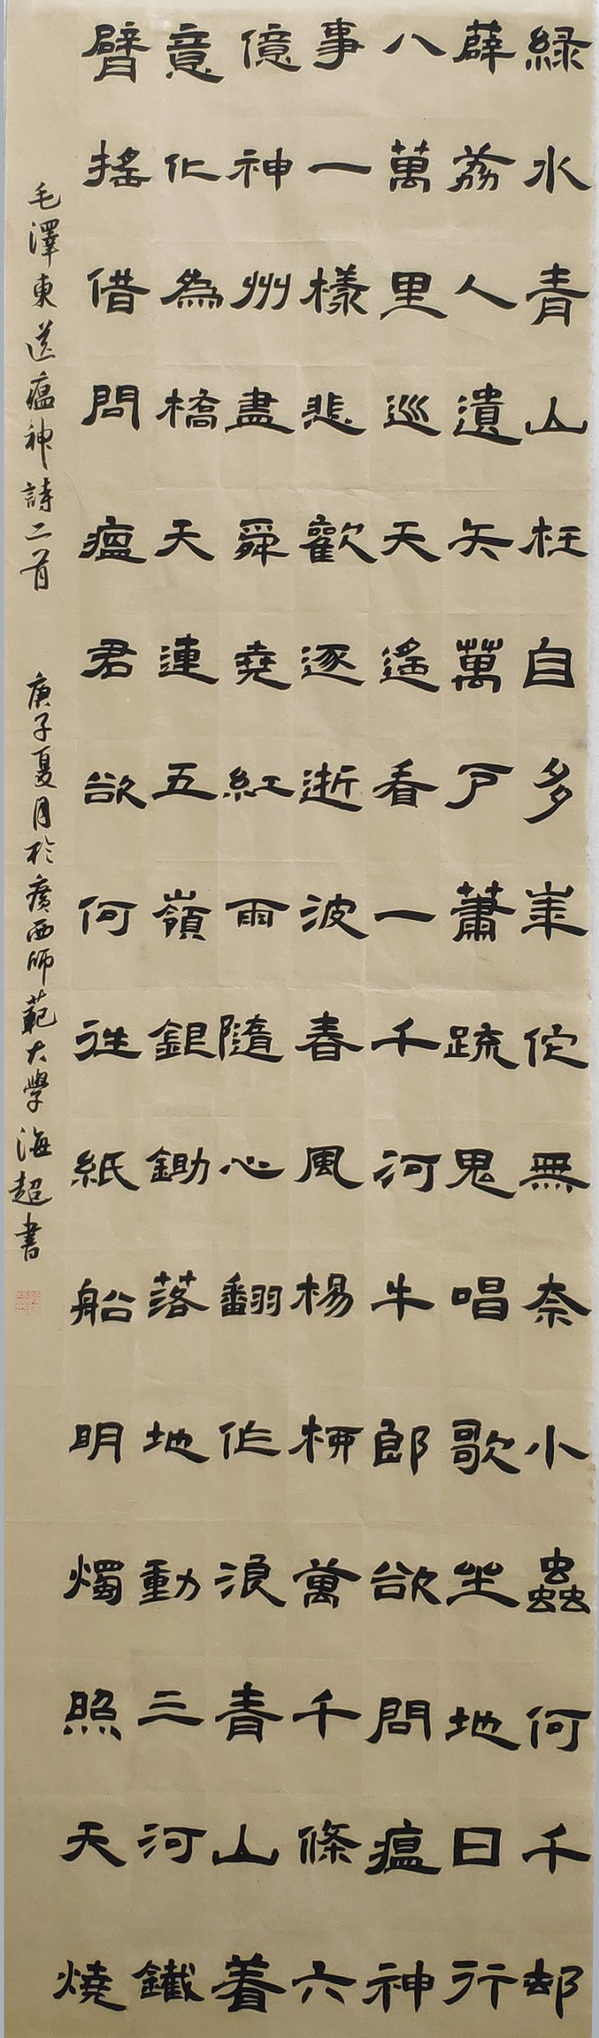 緑水青山枉自多崋佗無奈小蟲何千邨
薜荔人遺矢萬戶蕭疏鬼唱歌坐地日行
八萬里巡天遙看一千河牛郎欲問瘟神
事一樣悲歡逐逝波春風楊柳萬千條六
億神州盡舜堯紅雨隨心翻作浪青山着
意化為橋天連五嶺銀鋤落地動三河鐵
臂搖借問瘟君欲何往紙船明燭照天燒
毛澤東送瘟神詩二首 庚子夏月於廣西師範大學海超書